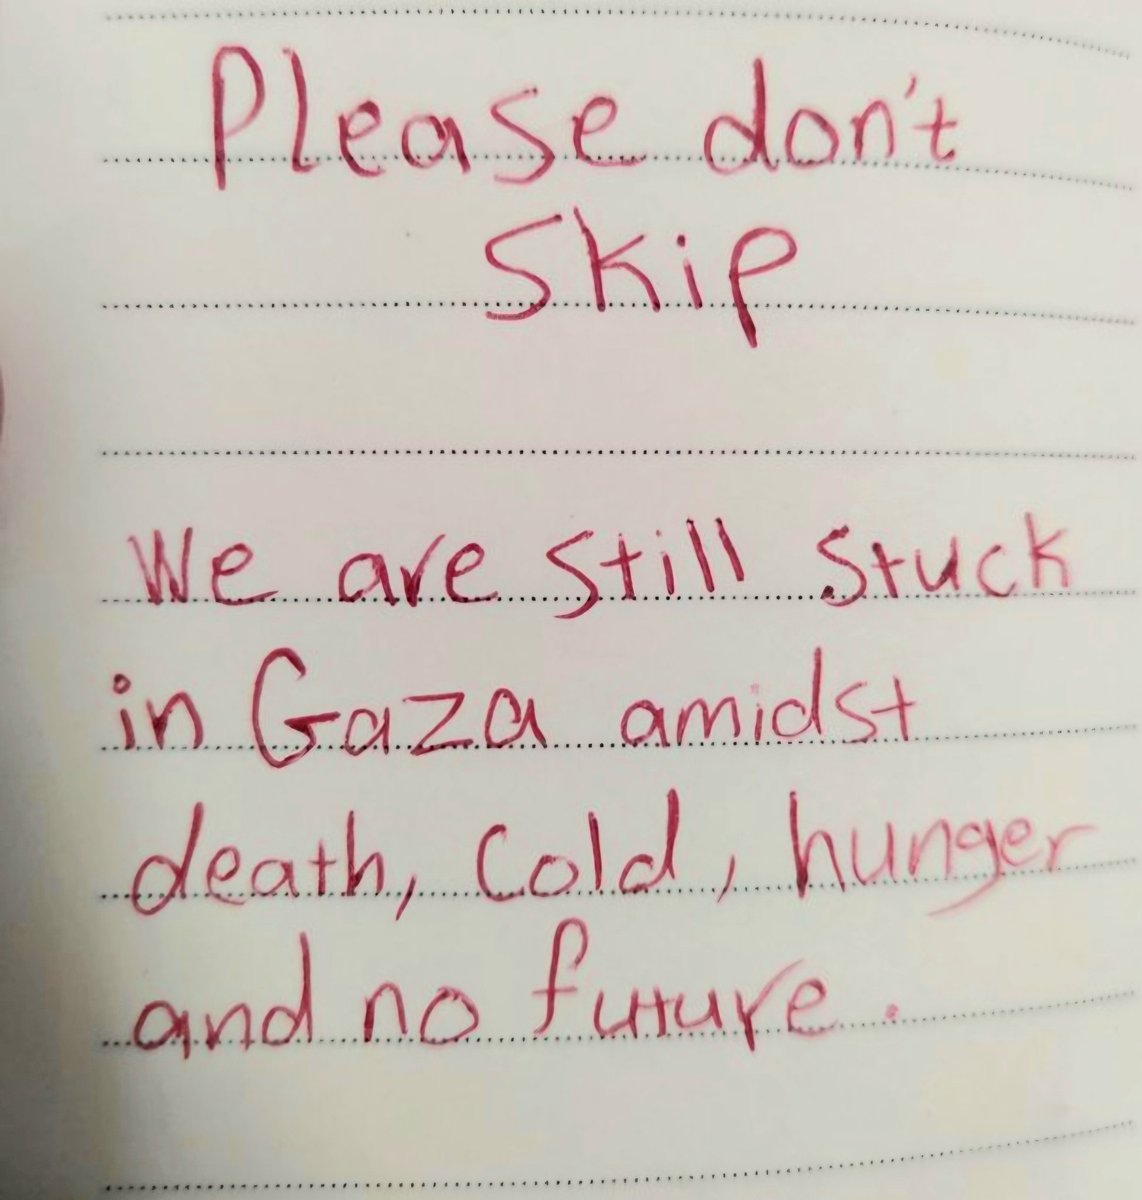 Please don't
skip
We are still stuck
in Gaza amidst
death, cold, hunger
and no future.